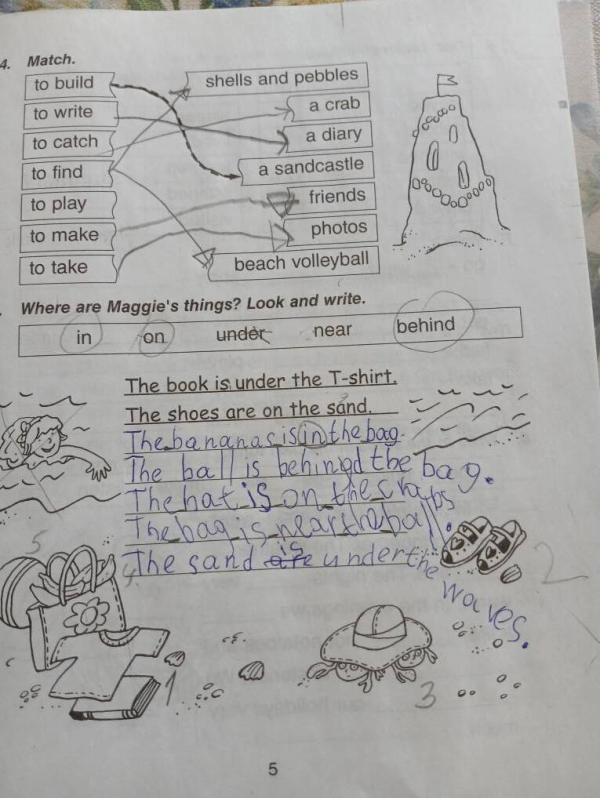 4. Match.
to build
shells and pebbles
to write
a crab
to catch
a diary
to find
a sandcastle
to play
friends
to make
photos
to take
beach volleyball
Where are Maggie's things? Look and write.
in on under near behind
The book is under the T-shirt.
The shoes are on the sand.
The bananas is in the bag.
The ball is behingd the bag.
The hat is on the craps
The bag is near the ball.
The sand is under the waves.
5
4
2
1
3
5